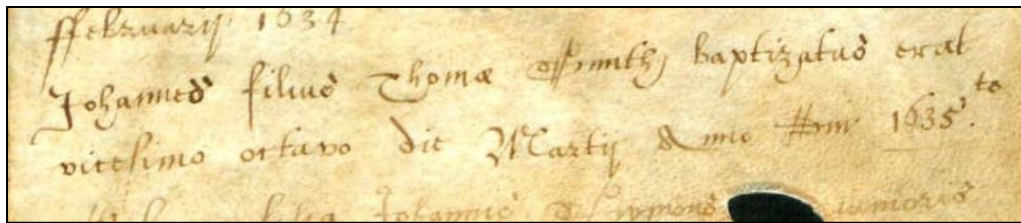 ffebruarij 1634
Johannes filius Thomæ Smith baptizatus erat
vicesimo octavo die Martij Anno Dni 1635.to
filia Johannis Symons iunioris